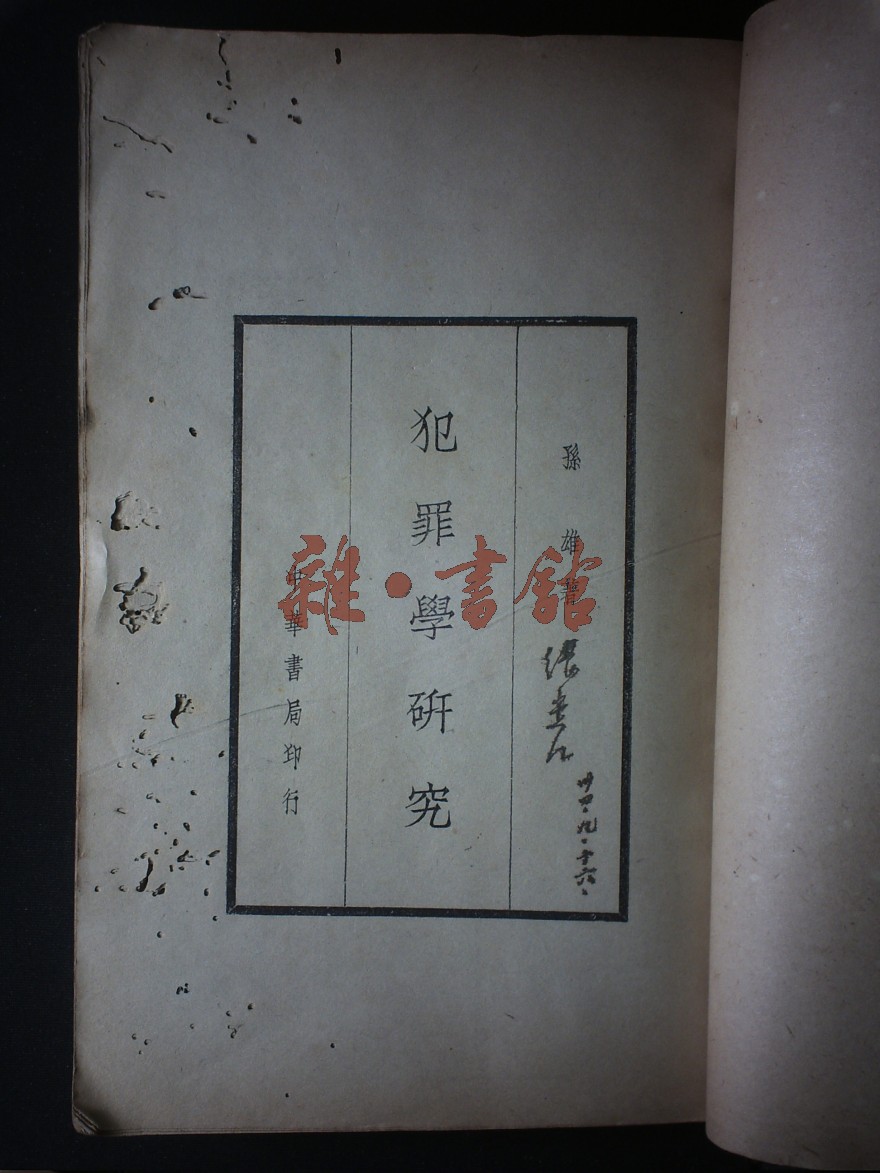 孫雄著
卅四、九、十六、
犯罪學研究
中華書局印行
雜·書館